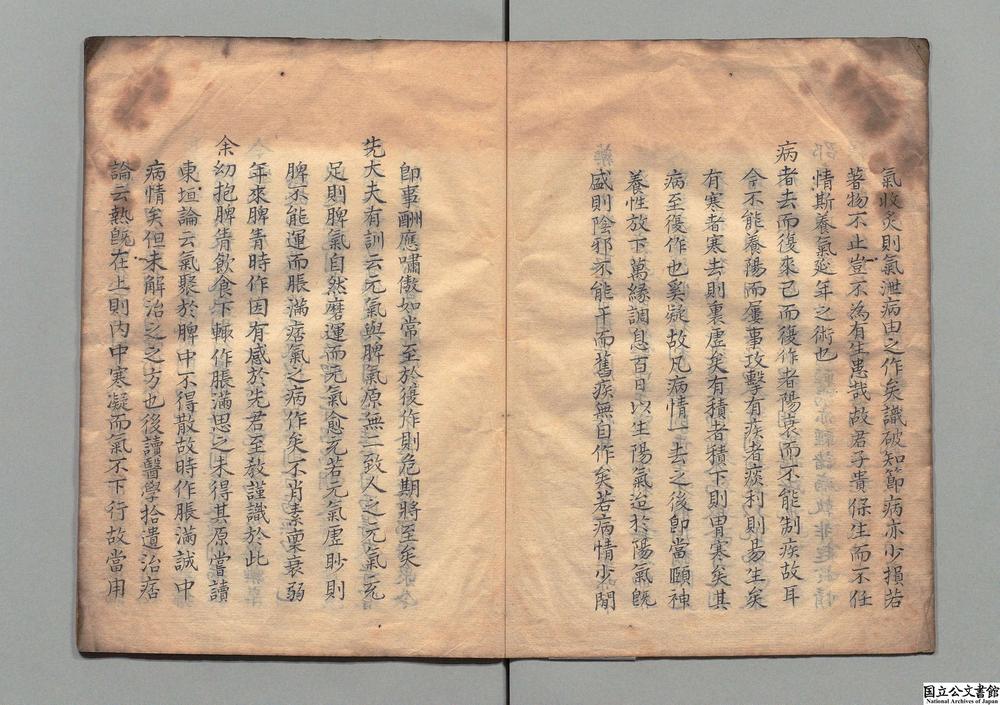 氣收炙則氣泄病由之作矣識破知節病亦少損若
著物不止豈不為有生患哉故君子貴保生而不任
情斯養氣延年之術也
病者去而復來已而復作者陽衰而不能制疾故耳
今不能養陽而屢事攻擊有疾者痰利則易生矣
有寒者寒去則裏虛矣有積者積下則胃寒矣其
病至復作也奚疑故凡病情一去之後即當頤神
養性放下萬緣調息百日以生陽氣迨於陽氣既
盛則陰邪不能干而舊疾無自作矣若病情少間
即事酬應嘯傲如常至於復作則危期將至矣
先大夫有訓云元氣與脾氣原無二致人之元氣充
足則脾氣自然磨運而元氣愈充若元氣虛眇則
脾不能運而脹滿痞氣之病作矣不肖素稟衰弱
年來脾眚時作因有感於先君至教謹識於此
余幼抱脾眚飲食下輙作脹滿思之未得其原嘗讀
東垣論云氣聚於脾中不得散故時作脹滿誠中
病情矣但未解治之之方也後讀醫學拾遺治痞
論云熱既在上則內中寒凝而氣不下行故當用
国立公文書館
National Archives of Japan